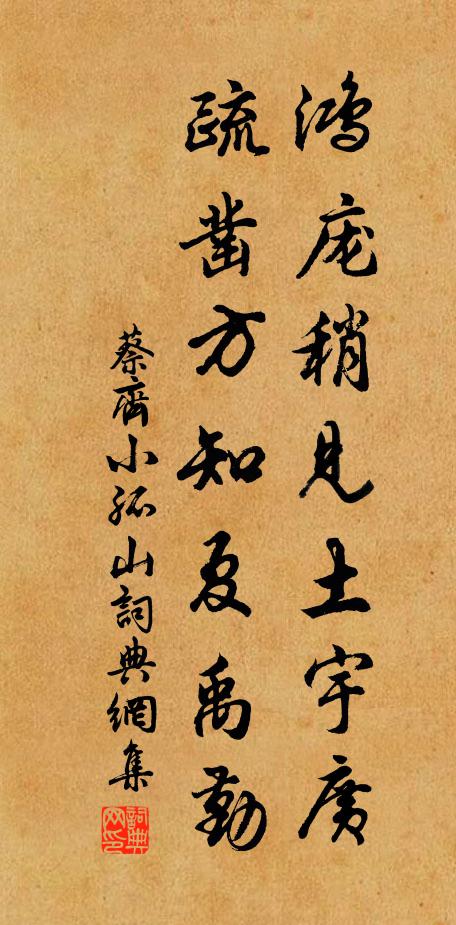 鸿庬稍見土宇廣
疏凿方知夏禹勤
蔡齊小孤山詞典網集
詞典网印